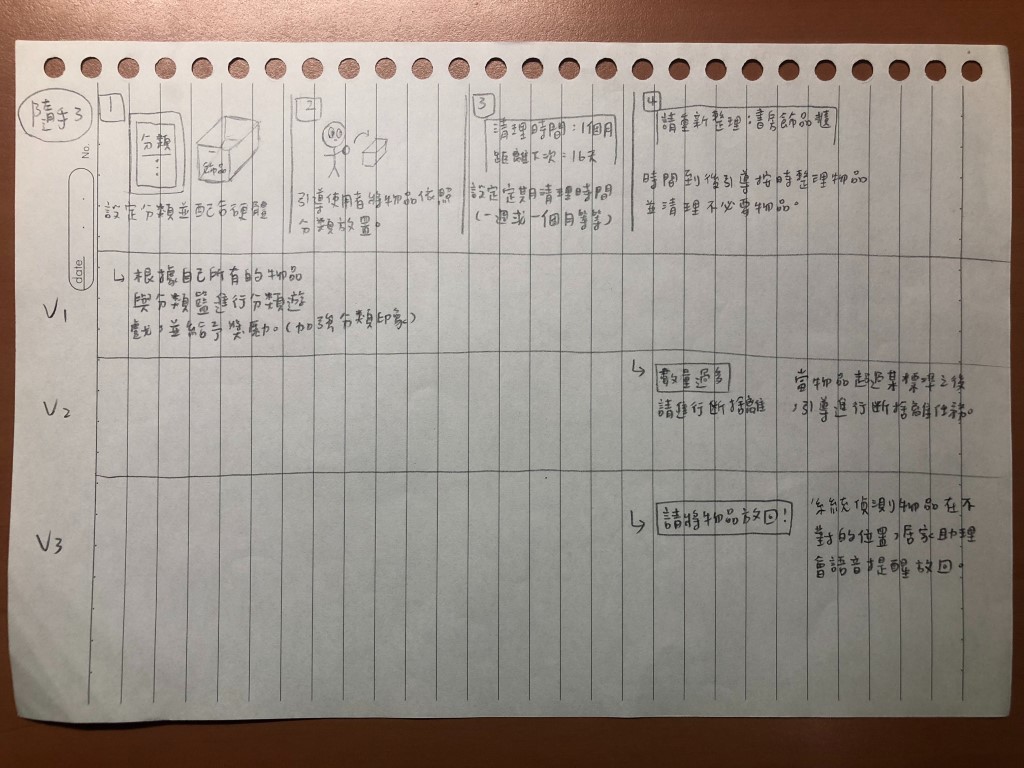 隨手3
No.
date
1
分類
飾品
設定分類並配右硬體
2
引導使用者將物品依照
分類放置。
3
清理時間:1個月
距離下次:16天
設定定期清理時間
(一週或一個月等等)
4
請重新整理:書房飾品櫃
時間到後引導按時整理物品
並清理不必要物品。
V1
↳ 根據自己所有的物品
與分類籃進行分類遊
戲,並給予獎勵。(加強分類印象)
V2
↳ 數量過多
請進行斷捨離
當物品超過某標準之後
,引導進行斷捨離任務。
V3
↳ 請將物品放回!
系統偵測物品在不
對的位置,居家助理
會語音提醒放回。